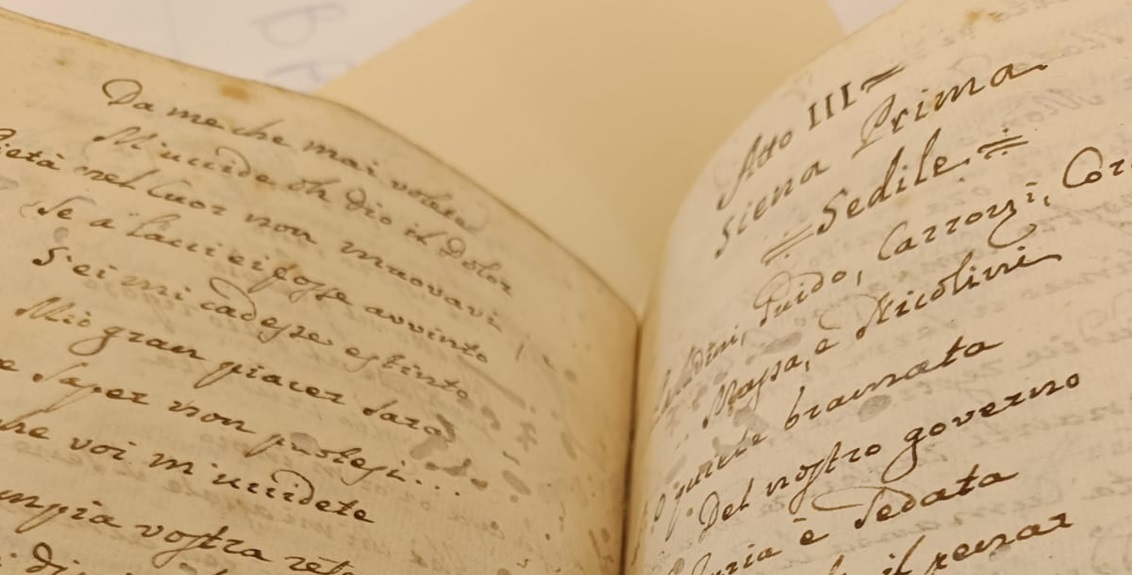 Da me che mai volete
M'uccide oh Dio il Dolor
Pietà nel Cuor non muovavi
Se a' lacci ei fosse avvinto
S'ei mi cadesse estinto
Mio gran piacer sarà
saper non potesi...
che voi m'uccidete
empia vostra
Atto III
Siena Prima
Sedile
Guido, Carrozzi, Cor
Massa, e Niccolini
O quiete bramata
Del nostro governo
è Sedata
il penzar